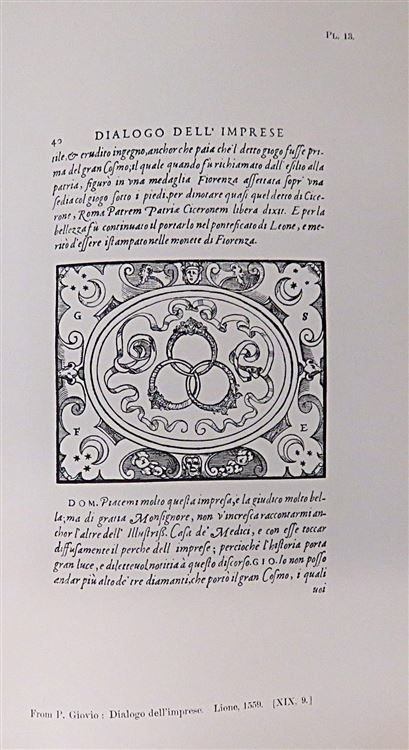 PL. 13.
40 DIALOGO DELL' IMPRESE
tile, & erudito ingegno, anchor che paia che'l detto giogo fusse pri-
ma del gran Cosmo; il quale quando fù richiamato dall' esilio alla
patria, figurò in vna medaglia Fiorenza assettata sopr' vna
sedia col giogo sotto i piedi, per dinotare quasi quel detto di Cice-
rone, ROMA PATREM PATRIÆ CICERONEM LIBERA DIXIT. E per la
bellezza fù continuato il portarlo nel ponteficato di Leone, e me-
ritò d'essere istampato nelle monete di Fiorenza.
G S
F E
DOM. Piacemi molto questa impresa, e la giudico molto bel-
la; ma di gratia Monsignore, non v'incresca raccontarmi an-
chor l'altre dell' Illustriß. Casa de' Medici, e con esse toccar
diffusamente il perche dell' imprese; percioche l'historia porta
gran luce, e diletteuol notitia à questo discorso. GIO. Io non posso
andar più alto de' tre diamanti, che portò il gran Cosmo, i quali
uoi
From P. Giovio: Dialogo dell'imprese. Lione, 1559. [XIX, 9.]